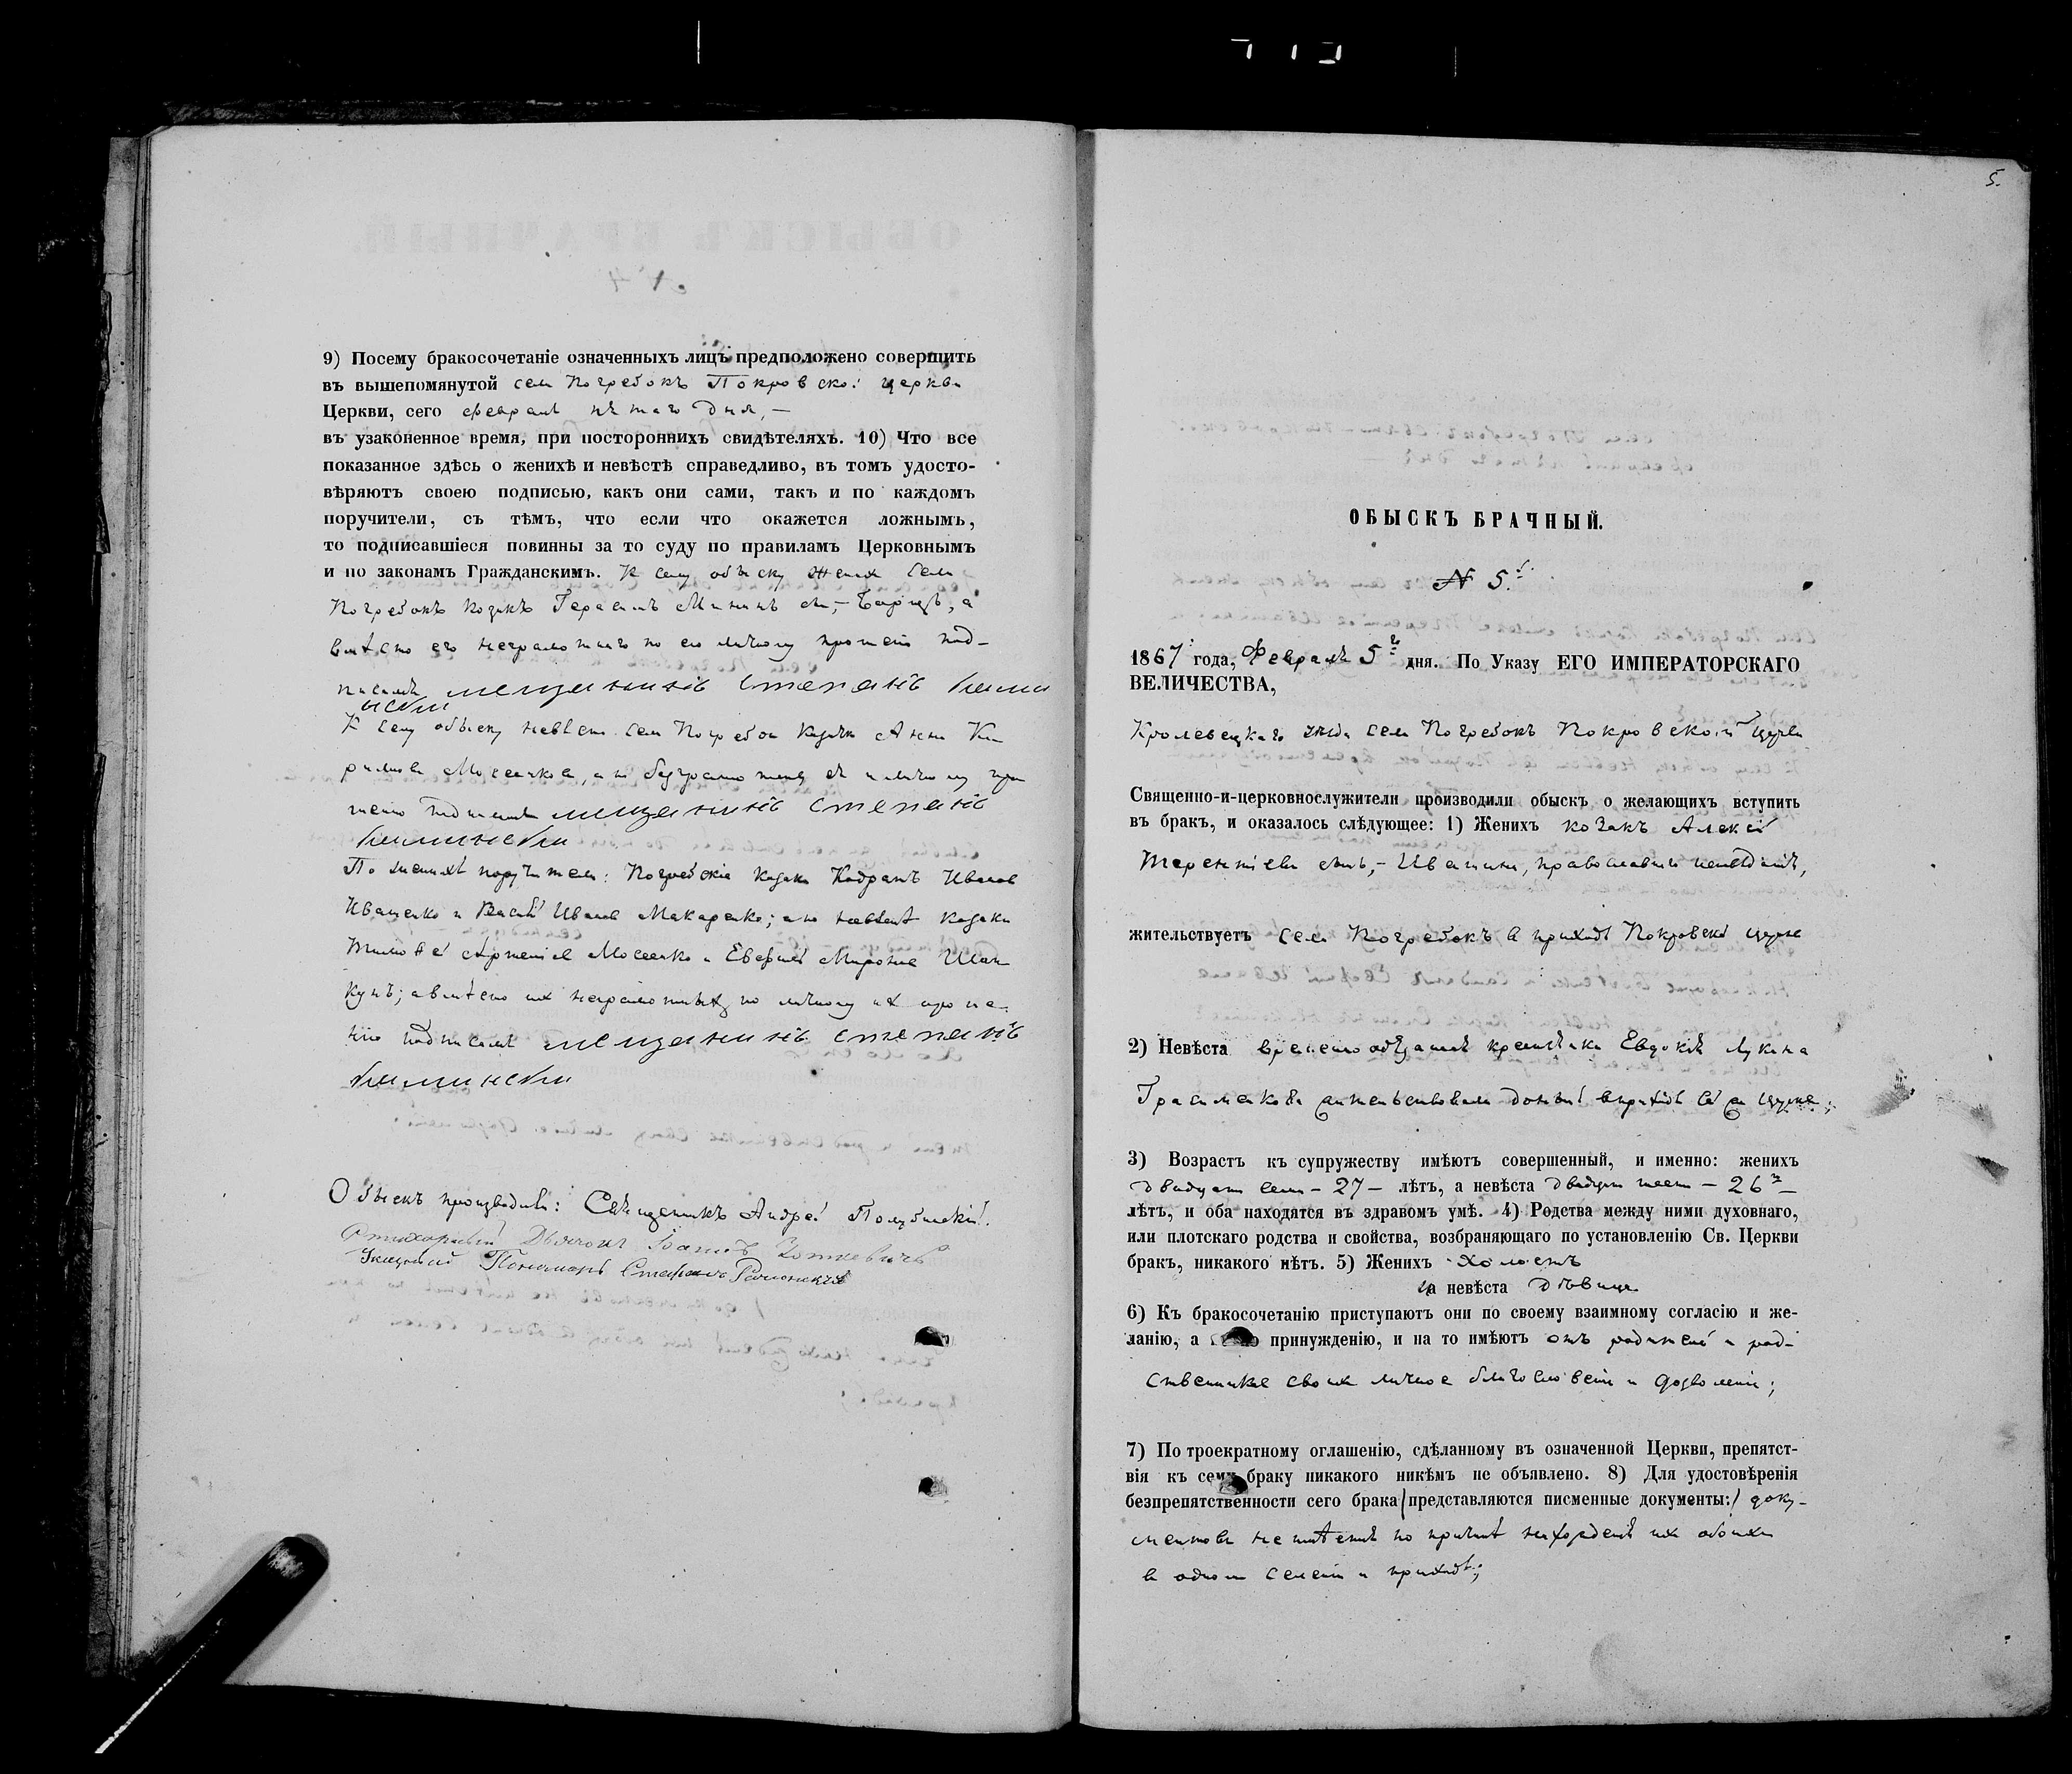 9) Посему бракосочетаніе означенныхъ лицъ предположено совершить
въ вышепомянутой села Погребокъ Покровской церкви
Церкви, сего февраля пятаго дня,—
въ узаконенное время, при постороннихъ свидѣтеляхъ. 10) Что все
показанное здѣсь о женихѣ и невѣстѣ справедливо, въ томъ удосто-
вѣряютъ своею подписью, какъ они сами, такъ и по каждомъ
поручители, съ тѣмъ, что если что окажется ложнымъ,
то подписавшіеся повинны за то суду по правиламъ Церковнымъ
и по законамъ Гражданскимъ. К сему обыску Жених села
Погребокъ козакъ Герасимъ Мининъ сы,- а
вмѣсто его неграмотнаго по его личному прошенію под-
писалъ мещанинъ степанъ
К сему обыску невѣста села Погребок Козачка Анна Ки
рилова Мосеенкова, а по безграмотному ея и личному про
шенію подписалъ мещанинъ степанъ
По женихѣ поручители: Погребскіе козаки Иванов
Иващенко и Васілій Иванов Макаренко; а по невѣстѣ козаки
Тимофей Мосеенко и Евфимій Миронов Шап
кунъ; а вмѣсто их неграмотныхъ по личному их проше-
нію подписалъ мещанинъ степанъ
Обыскъ производили: Священникъ Андрей
Дьячокъ Іоаннъ
Пономарь Стефанъ
5.
ОБЫСКЪ БРАЧНЫЙ.
№ 5.
1867 года, Февраля 5 го дня. По Указу ЕГО ИМПЕРАТОРСКАГО
ВЕЛИЧЕСТВА,
Кролевецкаго уѣзда села Погребокъ Покровской церкви
Священно-и-церковнослужители производили обыскъ о желающихъ вступить
въ бракъ, и оказалось слѣдующее: 1) Женихъ козакъ Алексѣй
Терентіевъ сынъ,- православнаго исповѣданія,
жительствуетъ села Погребокъ в приходѣ Покровской церкви
2) Невѣста временно обязанная крестьянка Евдокія Лукина
Герасименкова жительствовала донынѣ в приходѣ сей же церкви;
3) Возрастъ къ супружеству имѣютъ совершенный, и именно: женихъ
двадцати семи - 27 - лѣтъ, а невѣста двадцати шести - 26 ти -
лѣтъ, и оба находятся въ здравомъ умѣ. 4) Родства между ними духовнаго,
или плотскаго родства и свойства, возбраняющаго по установленію Св. Церкви
бракъ, никакого нѣтъ. 5) Женихъ холостъ
а невѣста дѣвица
6) Къ бракосочетанію приступаютъ они по своему взаимному согласію и же-
ланію, а принужденію, и на то имѣютъ отъ родителей и род-
ственниковъ своихъ личное благословеніе и дозволеніе;
7) По троекратному оглашенію, сдѣланному въ означенной Церкви, препятст-
вія къ сему браку никакого никѣмъ не объявлено. 8) Для удостовѣренія
безпрепятственности сего брака (представляются писменные документы:) доку-
ментовъ не имѣется по причинѣ нахожденія ихъ обоихъ
в одном селеніи и приходѣ;